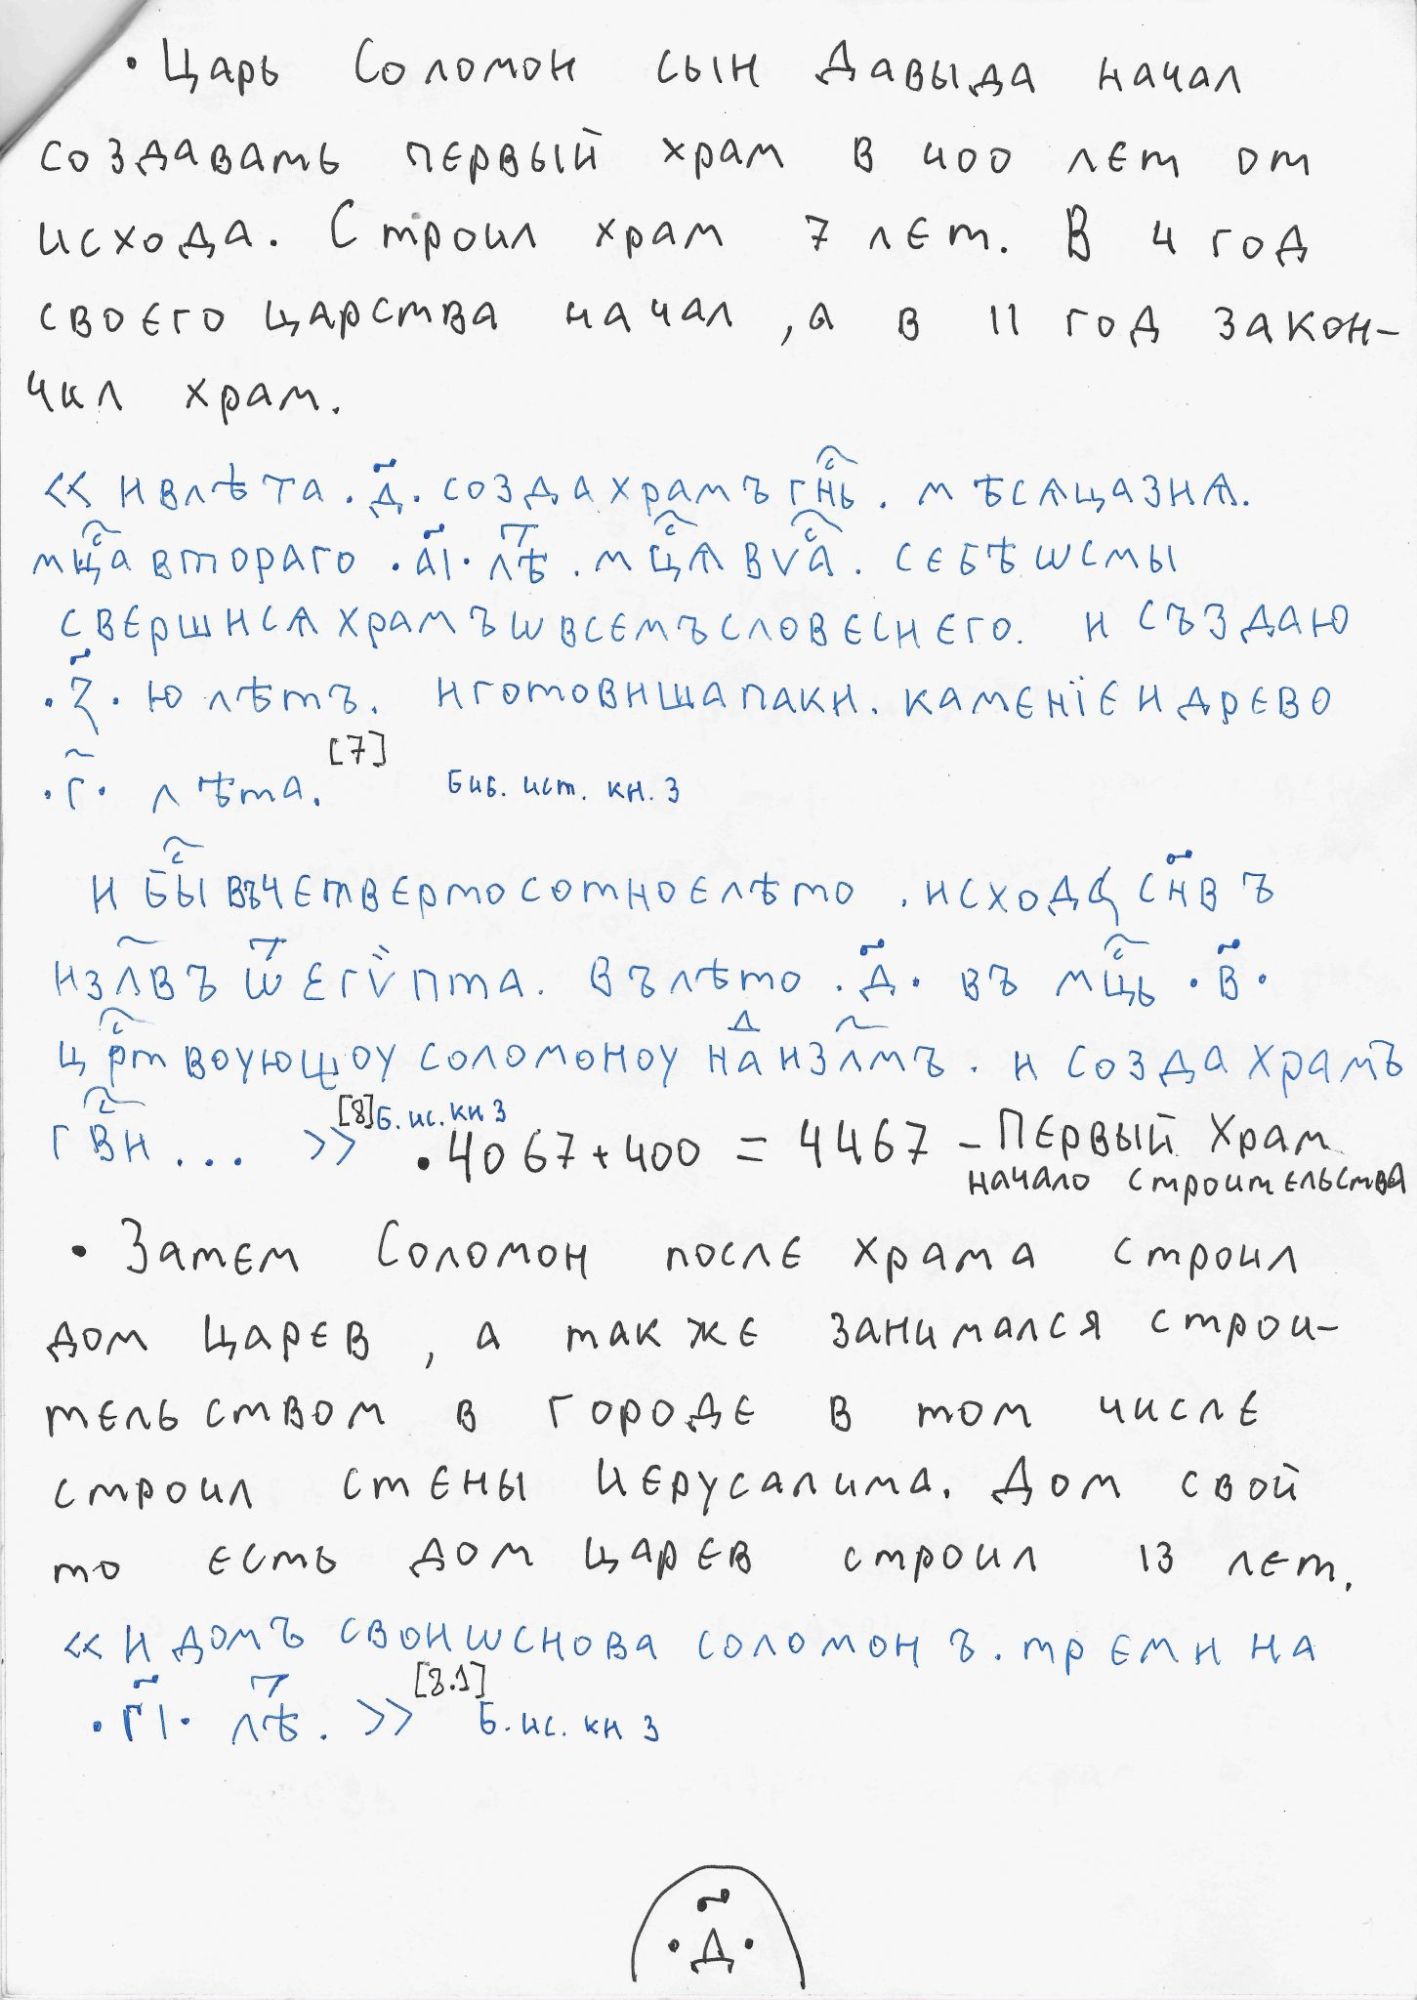 • Царь Соломон сын Давыда начал
создавать первый храм в 400 лет от
исхода. Строил храм 7 лет. В 4 год
своего царства начал, а в 11 год закон-
чил храм.
<< И в лѣта .д҃. созда храмъ гнⷭ҇ь. мѣсѧца зиѧ.
мцⷭ҇а втораго .а҃і. лѣⷮ. мцⷭ҇ѧ вѵⷭ҇а. се бѣ ѡсмы
сверши сѧ храмъ ѡ всемъ словеси его. и създаю
.з҃. ю лѣтъ. и готовиша паки. каменїе и древо
.г҃. лѣта. [7] Биб. ист. кн. 3
И бⷭ҇ы въ четвертосотное лѣто . исходꙋ сн҃въ
изл҃въ ѿ егѵ̀пта. въ лѣто .д҃. въ мцⷭ҇ь .в҃.
црⷭ҇твоующоу соломоноу наⷣ изл҃мъ. и созда храмъ
гвⷭ҇и ... >> [8] Б. ис. кн 3 • 4067+400 = 4467 – Первый Храм
начало строительства
• Затем Соломон после храма строил
дом царев, а также занимался строи-
тельством в городе в том числе
строил стены Иерусалима. Дом свой
то есть дом царев строил 13 лет.
<< И домъ свои ѡснова соломонъ. треми на
.г҃і. лѣⷮ. >> [8.1] Б. ис. кн 3
.д҃.